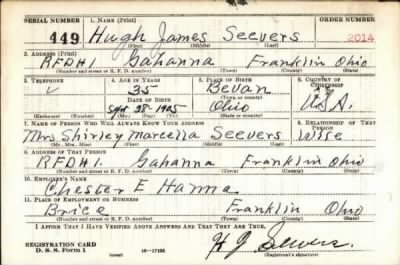 SERIAL NUMBER 1. NAME (Print) ORDER NUMBER
449 Hugh James Seevers 2014
(First) (Middle) (Last)
2. ADDRESS (Print)
RFD#1. Gahanna Franklin Ohio
(Number and street or R. F. D. number) (Town) (County) (State)
3. TELEPHONE 4. AGE IN YEARS 5. PLACE OF BIRTH 6. COUNTRY OF CITIZENSHIP
35 Bevan
DATE OF BIRTH (Town or county)
Sept 28 1905 Ohio U.S.A.
(Exchange) (No.) (Mo.) (Day) (Yr.) (State or country)
7. NAME OF PERSON WHO WILL ALWAYS KNOW YOUR ADDRESS 8. RELATIONSHIP OF THAT PERSON
Mrs Shirley Marcella Seevers Wife
(Mr., Mrs., Miss) (First) (Middle) (Last)
9. ADDRESS OF THAT PERSON
RFD#1. Gahanna Franklin Ohio
(Number and street or R. F. D. number) (Town) (County) (State)
10. EMPLOYER'S NAME
Chester E Hanna
11. PLACE OF EMPLOYMENT OR BUSINESS
Brice Franklin Ohio
(Number and street or R. F. D. number) (Town) (County) (State)
I AFFIRM THAT I HAVE VERIFIED ABOVE ANSWERS AND THAT THEY ARE TRUE.
REGISTRATION CARD
D. S. S. Form 1 (over) H J Seevers.
(Registrant's signature)